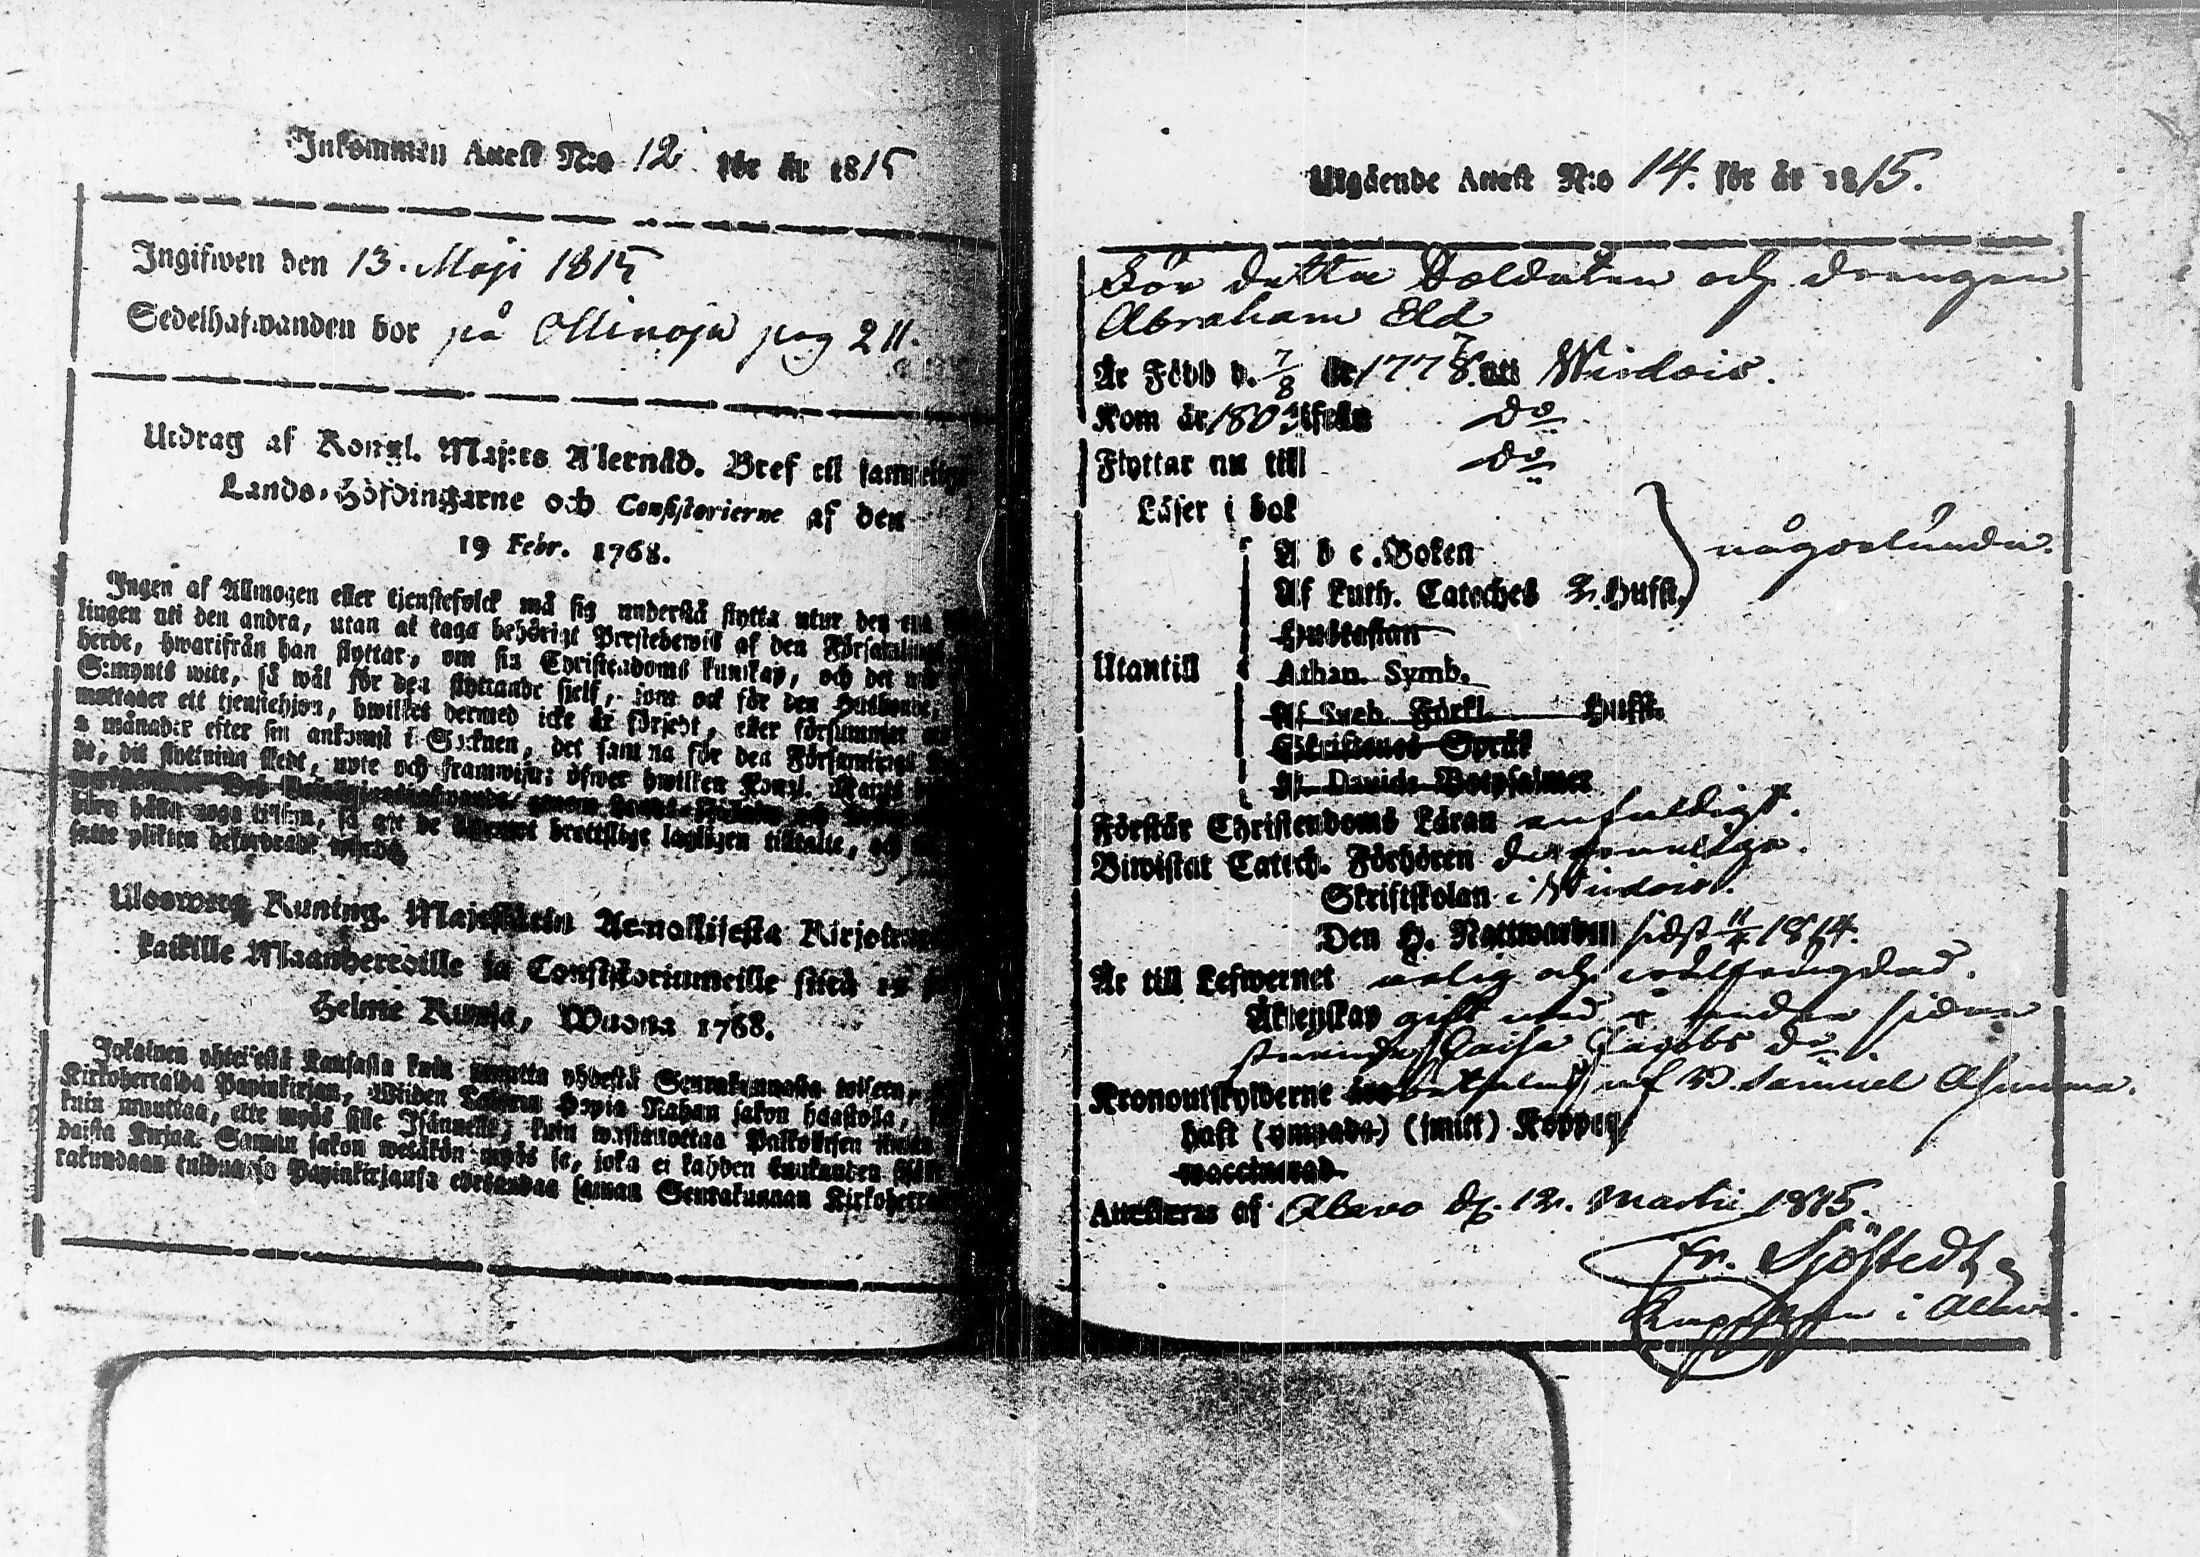 Inkommen Attest N:o 12 för år 1815
Ingifwen den 13. Maji 1815
Sedelhafwanden bor på Ollinoja pag 211.
Utdrag af Kongl. Maj:ts Allernåd. Bref till samtelige
Lands-Höfdingarne och Consistorierne af den
19 Febr. 1768.
Ingen af Allmogen eller tjenstefolck må sig understå flytta utur den ena
lingen uti den andra, utan at taga behörigt Prestebewis af den Församlings
herde, hwarifrån han flyttar, om sin Christendoms kunskap, och det wid
S:mynts wite, så wäl för den flyttande sielf, som ock för den Husbonde,
mottager ett tjenstehjon, hwilket dermed icke är försedt, eller försummar
2 månader efter sin ankomst i Socknen, det samma för den Församlings
de, dit flyttning skedt, upte och framwisa; öfwer hwilken Kongl. Maj:ts
hålla noga tillsyn, så att de brottslige lagligen tilltalte, och
satte plikten befordrade warda
Uloswetty Kuning. Majestetin Armollisesta Kirjotuxesta
kaikille Maanherroille ja Consistoriumeille siitä 19
Helme Kuusa, Wuonna 1768.
Jokainen yhteisestä Kansasta kuin muutta yhdestä Seurakunnasta toiseen,
Kirkoherralda Papinkirjan, Wiiden Talarin Hopia Rahan sakon haastolla,
kuin muuttaa, ette myös sille Isännelle, kuin wastanottaa Palkollisen ilman
daista Kirjaa. Saman sakon wetäkön myös se, joka ei kahden kuukauden sisälle
rakundaan tulduansa Papinkirjansa edesandaa saman Seurakunnan Kirkoherralle
Utgående Attest N:o 14. för år 1815.
För detta Soldaten och drengen
Abraham Eld
Är Född d. 7/8 år 1778. uti Wirdois.
Kom år 180 ifrån Do
Flyttar nu till Do
Läser i bok
A b c. Boken någorlunda.
Af Luth. Cateches 2. Hufst.
Hustaflan
Utantill Athan. Symb.
Af Sveb. Förkl. Hufst.
Skriftenes Språk
Af Davids Botpsalmer
Förstår Christendoms Läran enfaldigt.
Biwistat Catech. Förhören
Skriftskolan i Wirdois.
Den H. Nattwarden sidst 1814.
Är till Lefwernet ärlig och wälfrägdad.
Äktenskap gift med å andra sidan
stående Caisa Jacobs do
Kronoutskylderne betalas af B. Samuel
haft (ympade) (smitt) Koppor
waccinerad.
Attesteras af Alavo d. 12. Martii 1815.
Fr. Sjöstedt
i Alavo.